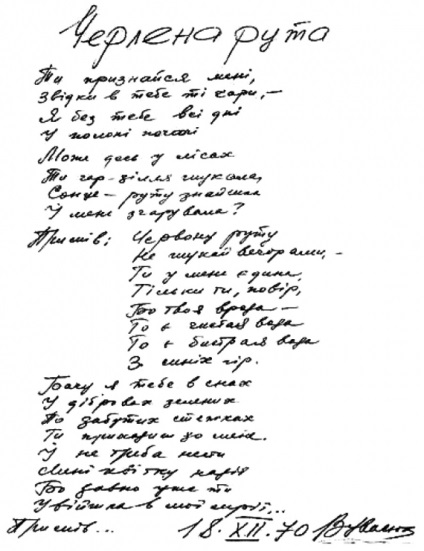 Черлена рута
Ти признайся мені,
Звідки в тебе ті чари,—
Я без тебе всі дні
У полоні печалі
Може десь у лісах
Ти чар-зілля шукала,
Сонце-руту знайшла
У мене зчарувала?
Приспів: Червону руту
Не шукай вечорами,—
Ти у мене єдина,
Тільки ти, повір,
Бо твоя врода —
То є чистая вода
То є бистрая вода
З синіх гір.
Бачу я тебе в снах
У дібровах зелених
По забутих стежках
Ти приходиш до мене.
У не треба нести
Мені квітку надії
Бо давно уже ти
Увійшла в мої мрії...
Приспів... 18.XII.70